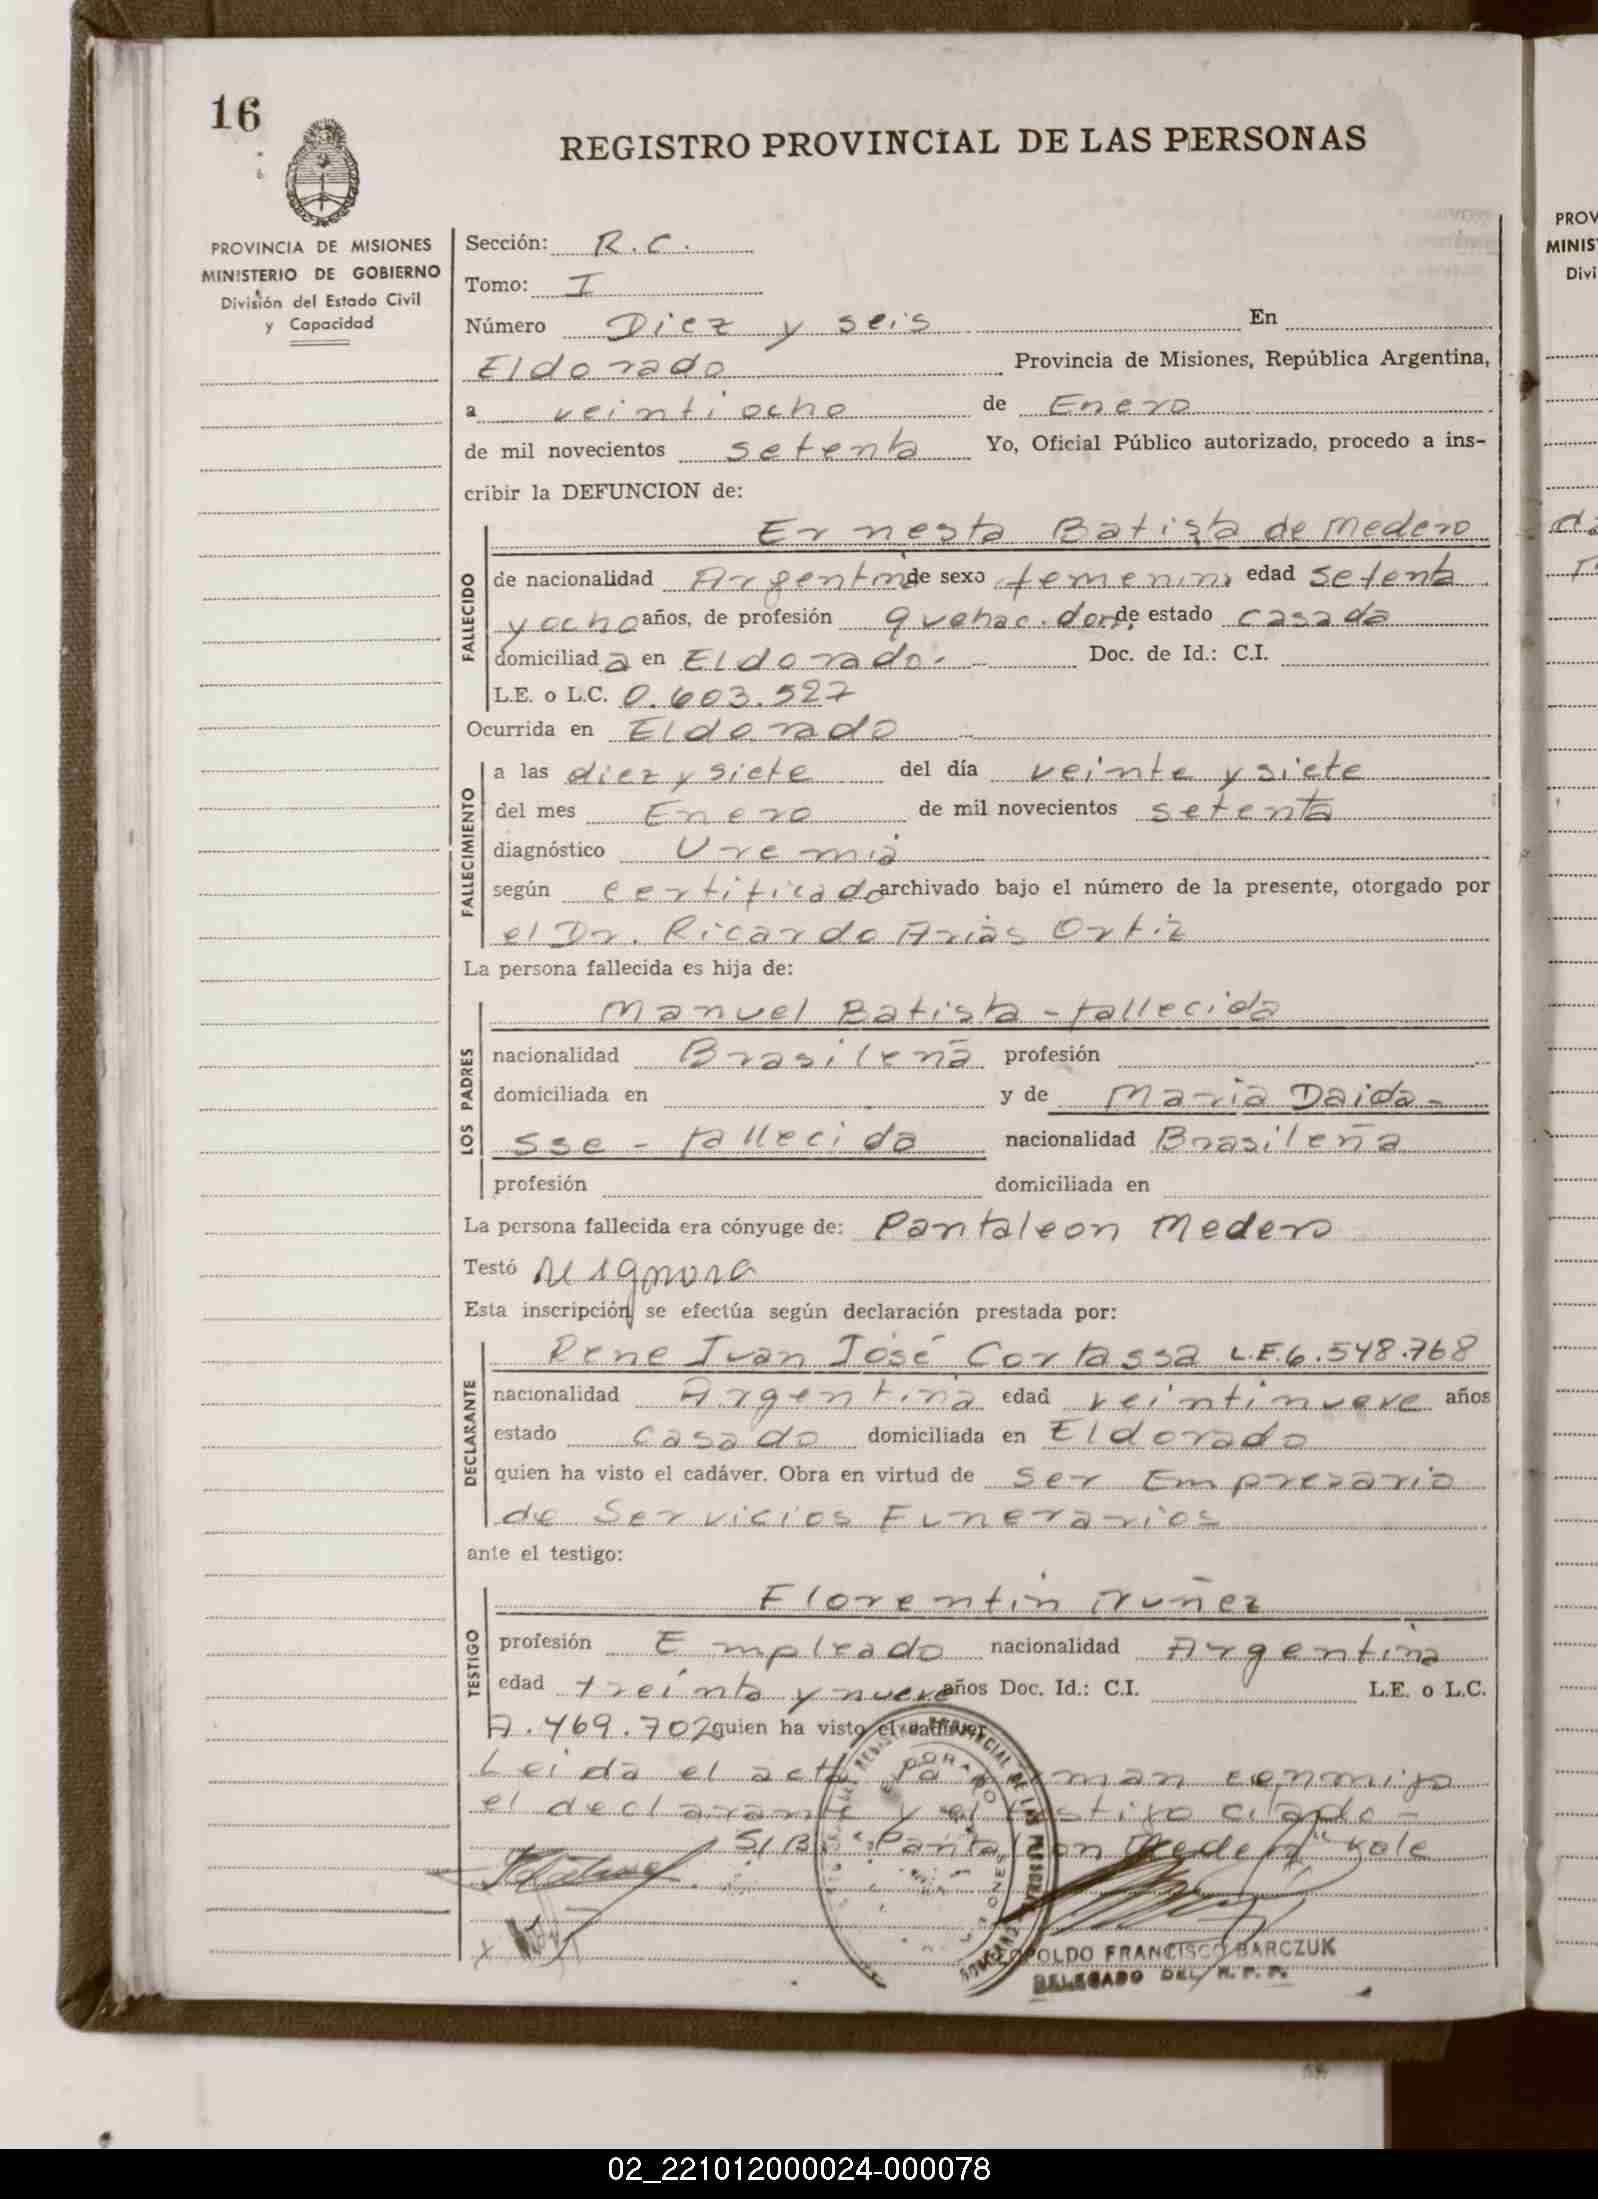 16
REGISTRO PROVINCIAL DE LAS PERSONAS
PROVINCIA DE MISIONES
MINISTERIO DE GOBIERNO
División del Estado Civil
y Capacidad
Sección: R.C.
Tomo: I
Número Diez y seis En
Eldorado Provincia de Misiones, República Argentina,
a veintiocho de Enero
de mil novecientos setenta Yo, Oficial Público autorizado, procedo a ins-
cribir la DEFUNCION de:
FALLECIDO
Ernesta Batista de Medero
de nacionalidad Argentina de sexo femenino edad setenta
y ocho años, de profesión quehac. dom. de estado casada
domiciliada en Eldorado. Doc. de Id.: C.I.
L.E. o L.C. 0.603.527
Ocurrida en Eldorado
FALLECIMIENTO
a las diez y siete del día veinte y siete
del mes Enero de mil novecientos setenta
diagnóstico Uremia
según certificado archivado bajo el número de la presente, otorgado por
el Dr. Ricardo Arias Ortiz
La persona fallecida es hija de:
LOS PADRES
Manuel Batista - fallecida
nacionalidad Brasileña profesión
domiciliada en y de Maria Daida-
sse - fallecida nacionalidad Brasileña
profesión domiciliada en
La persona fallecida era cónyuge de: Pantaleon Medero
Testó se ignora
Esta inscripción se efectúa según declaración prestada por:
DECLARANTE
Rene Ivan José Cortassa L.E. 6.548.768
nacionalidad Argentina edad veintinueve años
estado casado domiciliada en Eldorado
quien ha visto el cadáver. Obra en virtud de ser Empresario
de Servicios Funerarios
ante el testigo:
TESTIGO
Florentin Nuñez
profesión Empleado nacionalidad Argentina
edad treinta y nueve años Doc. Id.: C.I. L.E. o L.C.
7.469.702 quien ha visto el cadáver
Leida el acta la firman conmigo
el declarante y el testigo citado -
S/B: "Pantaleon Medero" vale
ELDORADO
MISIONES
LEOPOLDO FRANCISCO BARCZUK
DELEGADO DEL R. P. P.
PROV
MINIS
Divi
02_221012000024-000078